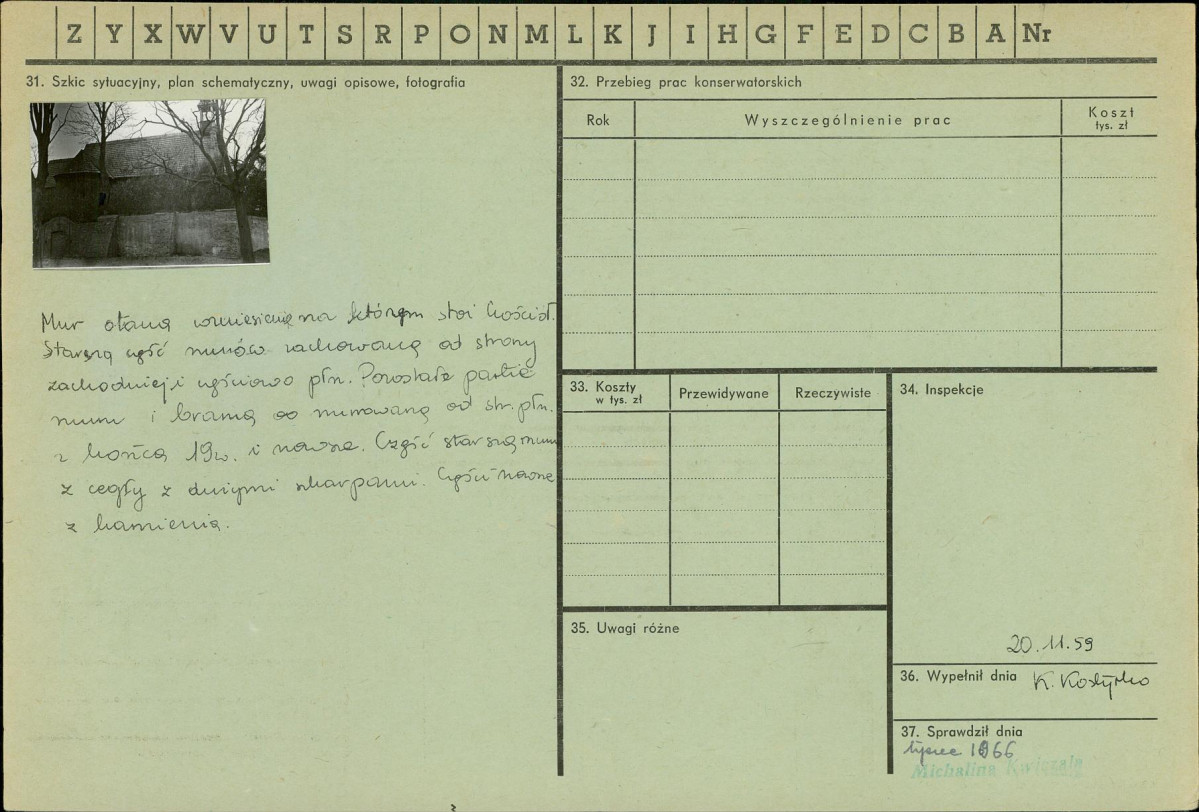 Z Y X W V U T S R P O N M L K J I H G F E D C B A Nr
31. Szkic sytuacyjny, plan schematyczny, uwagi opisowe, fotografia
Mur otacza wzniesienie na którym stoi kościół.
Starsza część murów zachowana od strony
zachodniej i częściowo płn. Pozostałe partie
muru i brama od str. płn.
z końca 19w. i nowsze. Część starsza muru
z cegły z dużymi skarpami. Części nowsze
z kamienia.
32. Przebieg prac konserwatorskich
Rok
Wyszczególnienie prac
Koszt
tys. zł
33. Koszty
w tys. zł
Przewidywane
Rzeczywiste
34. Inspekcje
35. Uwagi różne
20.11.59
36. Wypełnił dnia
K. Kostyrko
37. Sprawdził dnia
lipiec 1966
Michalina